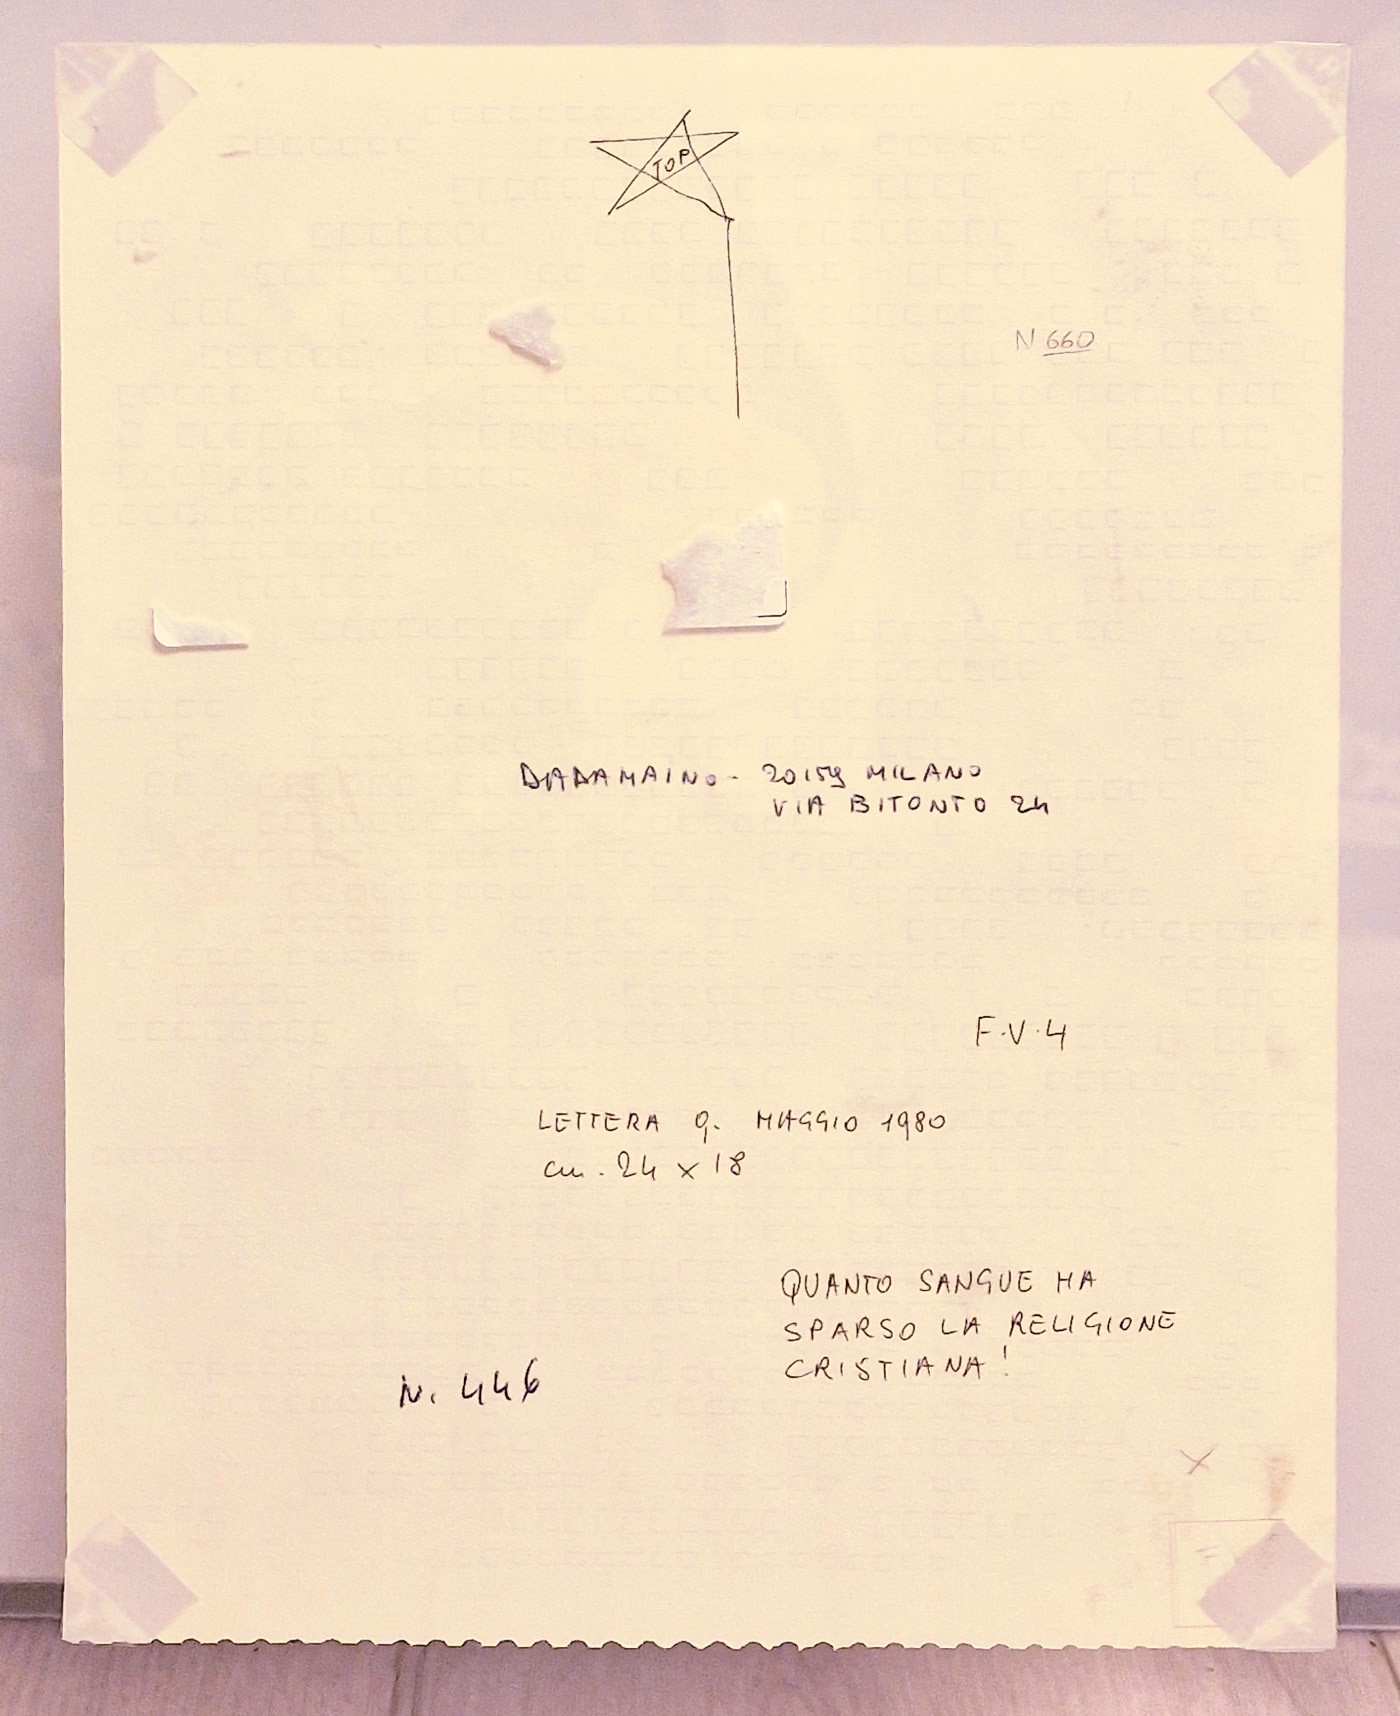 TOP
N 660
DADAMAINO - 20159 MILANO
VIA BITONTO 24
F.V.4
LETTERA 9. MAGGIO 1980
cm. 24 x 18
QUANTO SANGUE HA
SPARSO LA RELIGIONE
CRISTIANA!
N. 446